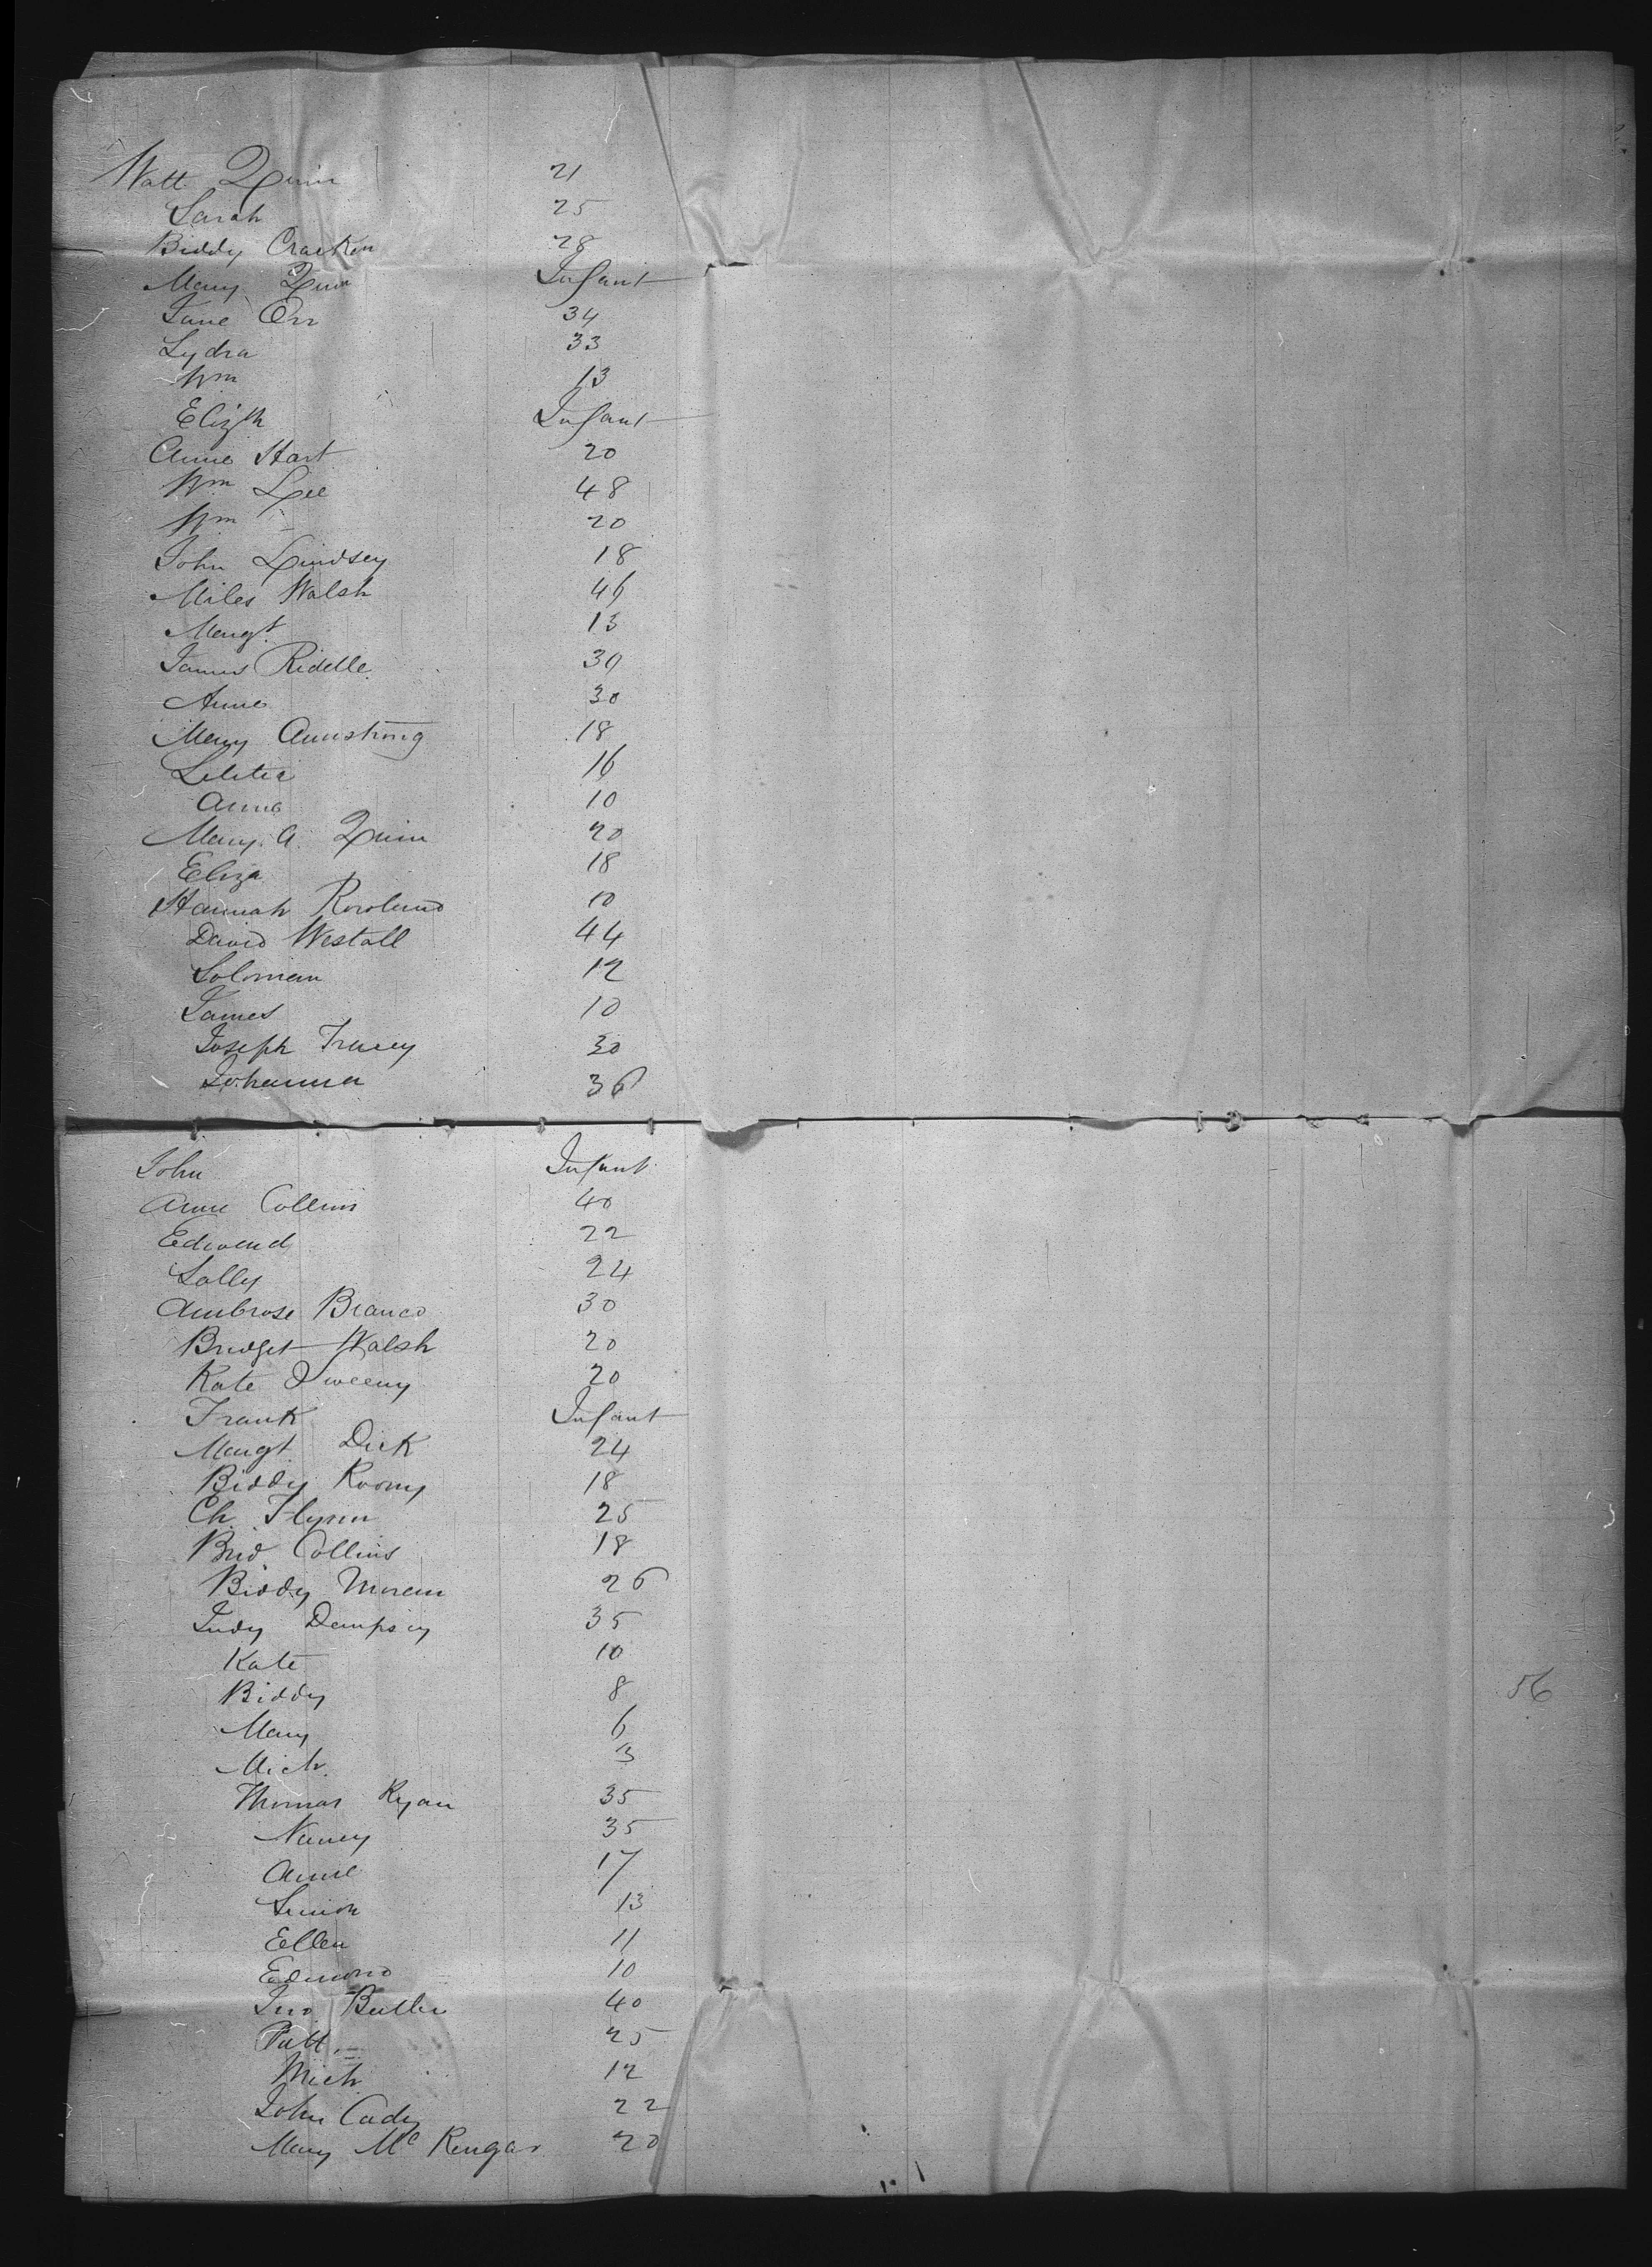 Watt Quinn 21
Sarah 25
Biddy Cracken 28
Mary Quin Infant
Jane Orr 34
Lydia 33
Wm 13
Elizth Infant
Anne Hart 20
Wm Lee 48
Wm 20
John Lindsey 18
Miles Walsh 46
Margt. 13
James Ridelle 39
Anne 30
Mary Armstrong 18
Letitia 16
Anne 10
Mary A. Quinn 20
Eliza 18
Hannah Rowland 10
David Westall 44
Soloman 12
James 10
Joseph Tracey 30
Johanna 36
John Infant
Anne Collins 40
Edward 22
Sally 24
Ambrose Branco 30
Bridget Walsh 20
Kate Sweeny 20
Frank Infant
Margt Dick 24
Biddy Roony 18
Ch. Flynn 25
Brid Collins 18
Biddy Moran 26
Judy Dempsey 35
Kate 10
Biddy 8
56
Mary 6
Mich. 3
Thomas Ryan 35
Nancy 35
Anne 17
Simon 13
Ellen 11
Edmond 10
Jno Butler 40
Patt. 25
Mich 12
John Cady 22
Mary Mc 20